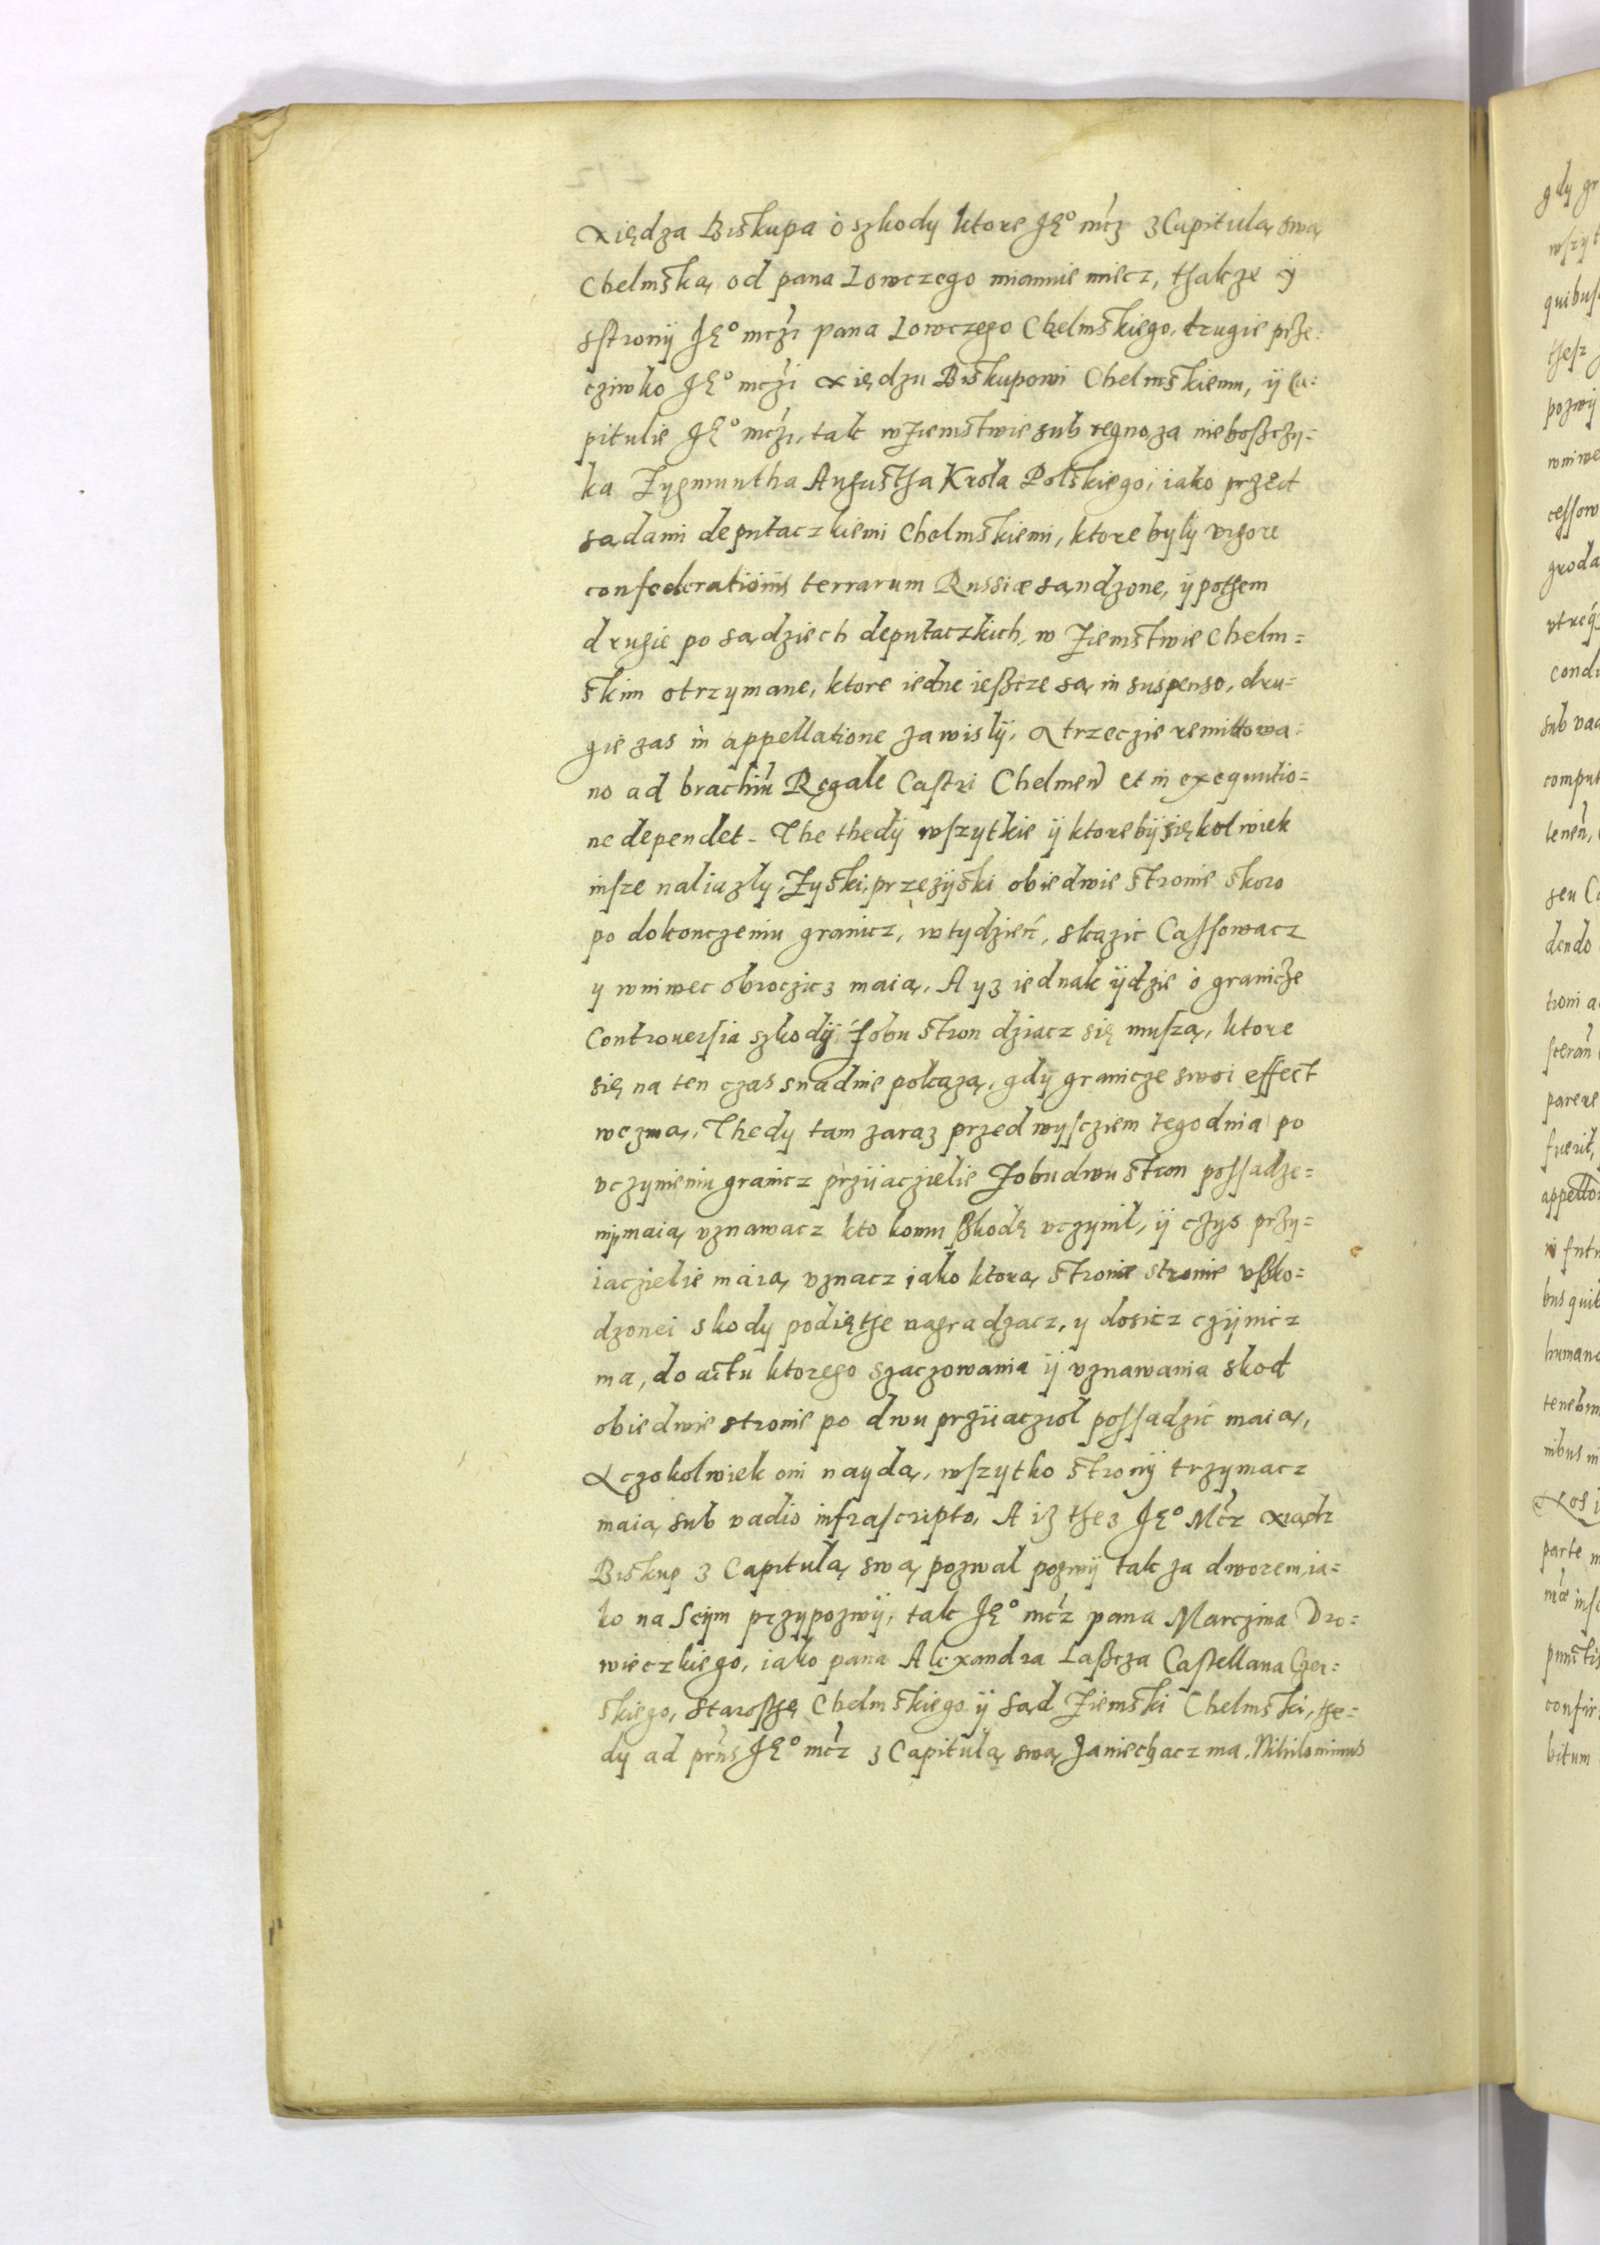 Xiędza Biskupa o szkody ktore JE° mcz z Capitulą swą
Chelmską od pana Lowczego mianuie miecz, thakze ÿ
sstronÿ JE° mczi pana Lowczego Chelmskiego, drugie prze:
cziwko JE° mczi Xiędzu Biskupowi Chelmskiemu, ÿ Ca:
pitulie JE° mczi, tak wZiemstwie sub regno za nieboßczy:
ka Zygmuntha Augustha Krola Polskiego, iako przed
sądami deputaczkiemi Chelmskiemi, ktore były vigore
confederationis terrarum Russiæ sandzone, ÿ pothem
drugie po sądziech deputaczkich, w Ziemstwie Chelm=
skim otrzymane, ktore iedne ießcze są in suspenso, dru=
gie zas in appellatione zawislÿ, A trzeczie remittowa=
no ad brachiū Regale Castri Chelmen̄ et in exequutio=
ne dependet. The thedÿ wszytkie ÿ ktorebÿ się kolwiek
insze naliazly, Zyski, przezÿski obiedwie stronie skoro
po dokonczeniu granicz, w tydzień, skazic Cassowacz
y wniwec obroczicz maią. A yz iednak ÿdzie o granicze
Controuersia szkodÿ zobu stron dziacz się muszą, ktore
się na ten czas snadnie pokazą, gdÿ granicze swoi effect
wezmą. Thedy tam zaraz przed wysciem tego dnia po
vczynieniu granicz przÿiaczielie Zobudwu stron possadze=
nÿ maią vznawacz kto komu szkodę vczynil, ÿ czys przy=
iaczielie maią vznacz iako ktora stronie stronie vszko=
dzonei skody podięthe nagradzacz, y dosicz czÿnicz
ma, do actu ktorego szaczowania ÿ vznawania skod
obiedwie stronie po dwu przÿiacziol possadzic maią,
A czokolwiek oni naydą, wszytko stronÿ trzymacz
maią sub vadio infrascripto, A iz thez JE° Mcz xiądz
Biskup z Capitulą swą pozwal pozwÿ tak za dworem, ia=
ko na Seÿm przypozwÿ, tak JE° mcz pana Marczina Vro=
wieczkiego, iako pana Alexandra Laßcza Castellana Czer=
skiego, Starosthę Chelmskiego ÿ Sąd Ziemski Chelmski, the=
dy ad prn̄s JE° mcz z Capitulą swą Zaniechacz ma. Nihilominus